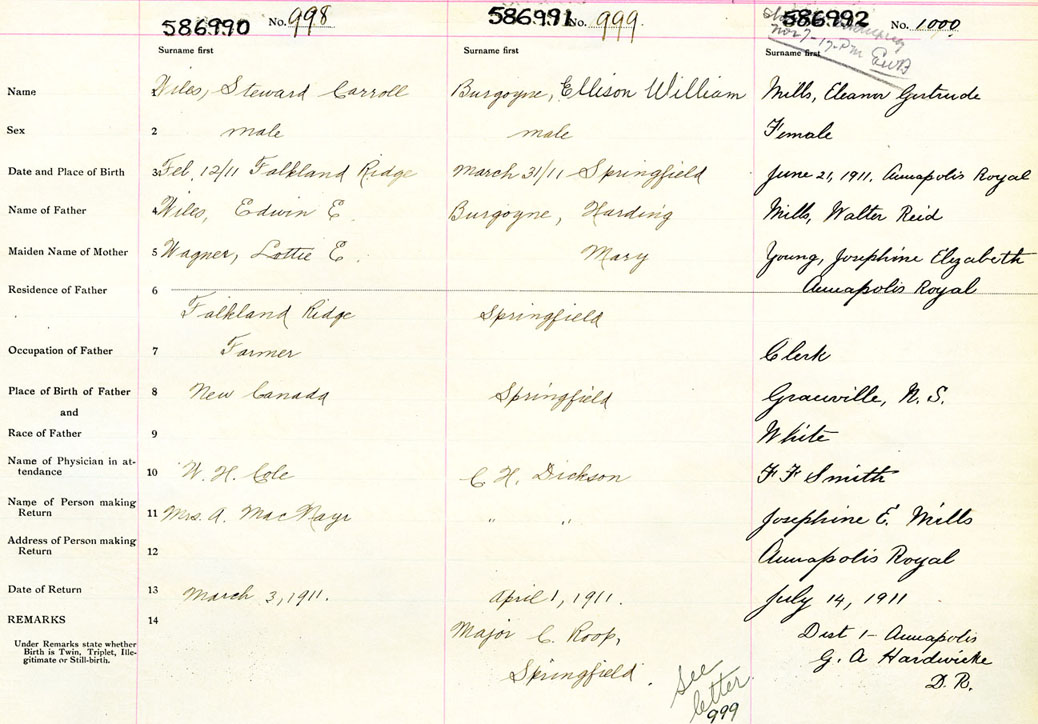 586990 No. 998 586991 No. 999 586992 No. 1000
Nov 7-17-PM EWB
Surname first Surname first Surname first
Name Wiles, Steward Carroll Burgoyne, Ellison William Mills, Eleanor Gertrude
Sex 2 male male Female
Date and Place of Birth 3 Feb. 12/11 Falkland Ridge March 31/11 Springfield June 21, 1911. Annapolis Royal
Name of Father 4 Wiles, Edwin E. Burgoyne, Harding Mills, Walter Reid
Maiden Name of Mother 5 Wagner, Lottie E. Mary Young, Josephine Elizabeth
Residence of Father 6 Annapolis Royal
Falkland Ridge Springfield
Occupation of Father 7 Farmer Clerk
Place of Birth of Father 8 New Canada Springfield Granville, N. S.
and
Race of Father 9 White
Name of Physician in at-
tendance 10 W. H. Cole C H. Dickson F F Smith
Name of Person making
Return 11 Mrs. A. MacNayr " " Josephine E. Mills
Address of Person making
Return 12 Annapolis Royal
Date of Return 13 March 3, 1911. April 1, 1911. July 14, 1911
REMARKS 14 Major C. Roop, Dist 1 - Annapolis
Under Remarks state whether
Birth is Twin, Triplet, Ille-
gitimate or Still-birth.
G. A Hardwicke
Springfield. D. R.
See
letter
999